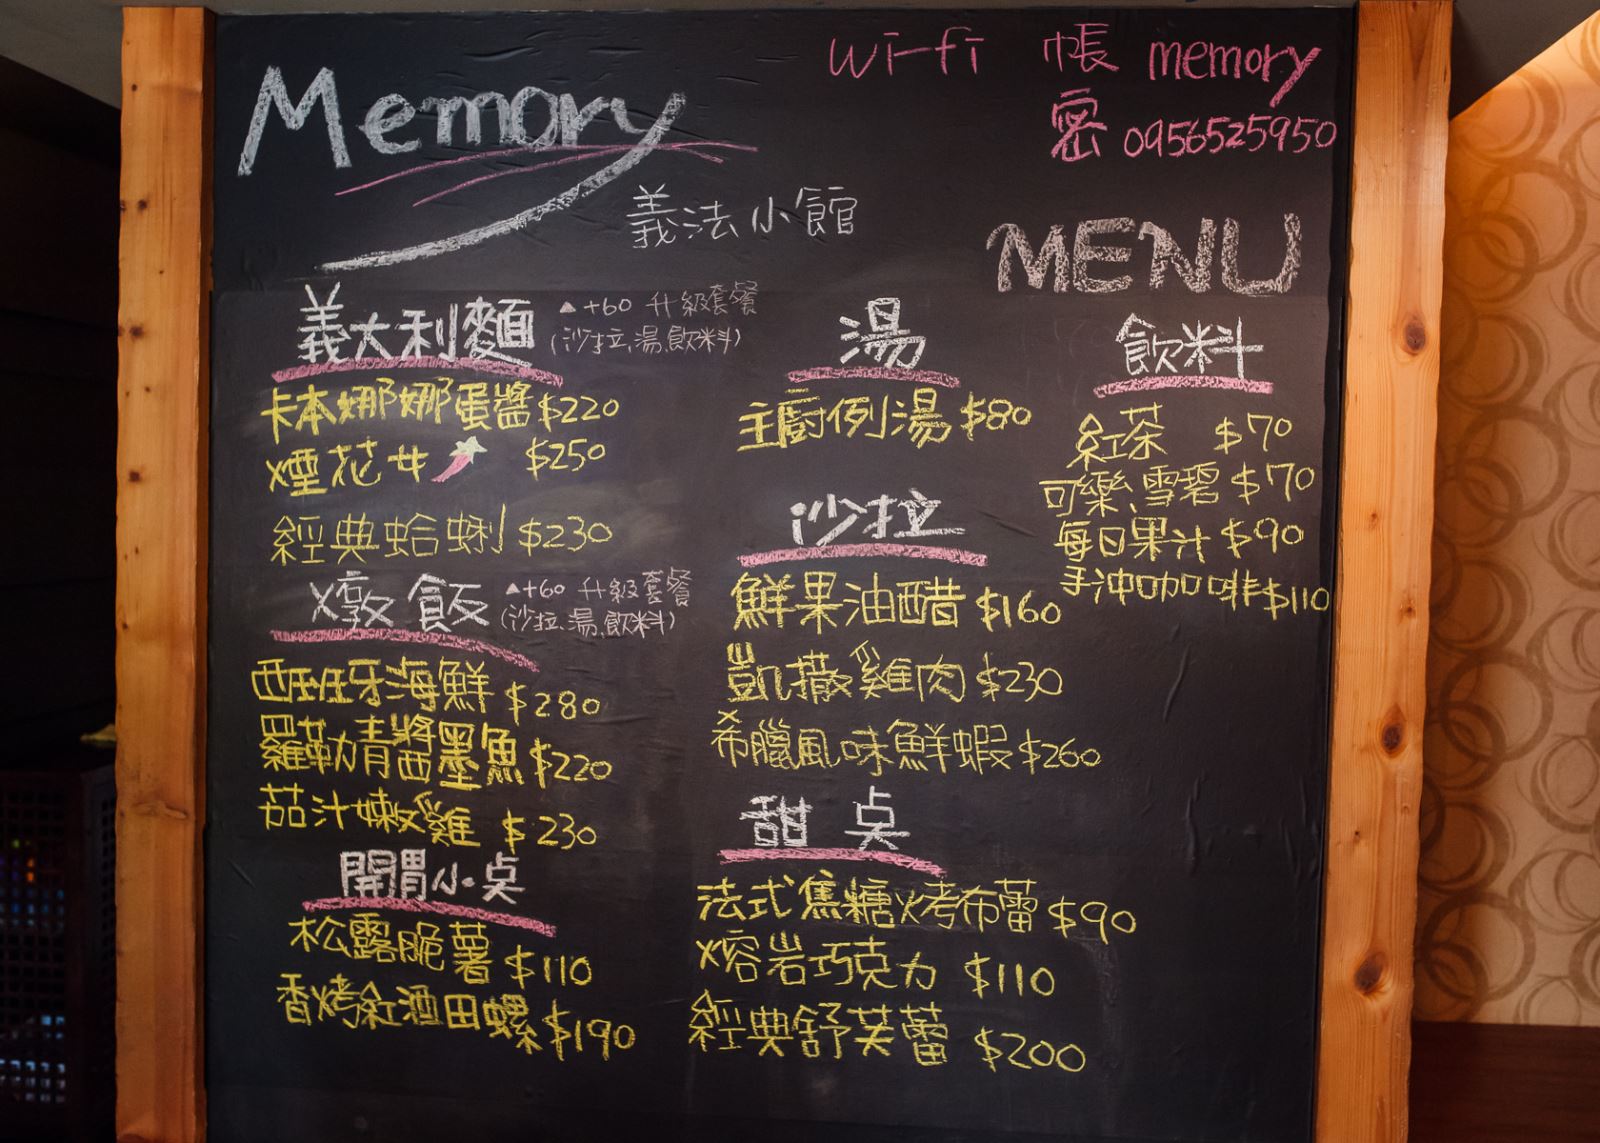 Memory
義法小館
wi-fi 帳 memory
密 0956525950
MENU
義大利麵
▲+60 升級套餐
(沙拉、湯、飲料)
卡本娜娜蛋醬 $220
煙花女 $250
經典蛤蜊 $230
燉飯
▲+60 升級套餐
(沙拉、湯、飲料)
西班牙海鮮 $280
羅勒青醬墨魚 $220
茄汁嫩雞 $230
開胃小点
松露脆薯 $110
香烤紅酒田螺 $190
湯
主廚例湯 $80
沙拉
鮮果油醋 $160
凱撒雞肉 $230
希臘風味鮮蝦 $260
甜点
法式焦糖烤布蕾 $90
熔岩巧克力 $110
經典舒芙蕾 $200
飲料
紅茶 $70
可樂、雪碧 $70
每日果汁 $90
手沖咖啡 $110